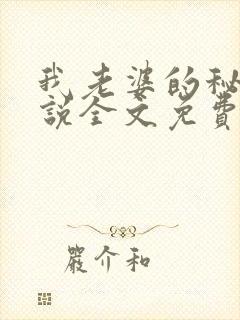 我老婆的秘
說全文免費
嚴介和